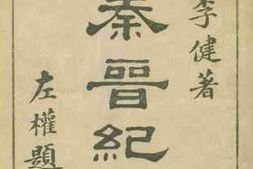 李健著
秦晋紀
左權題